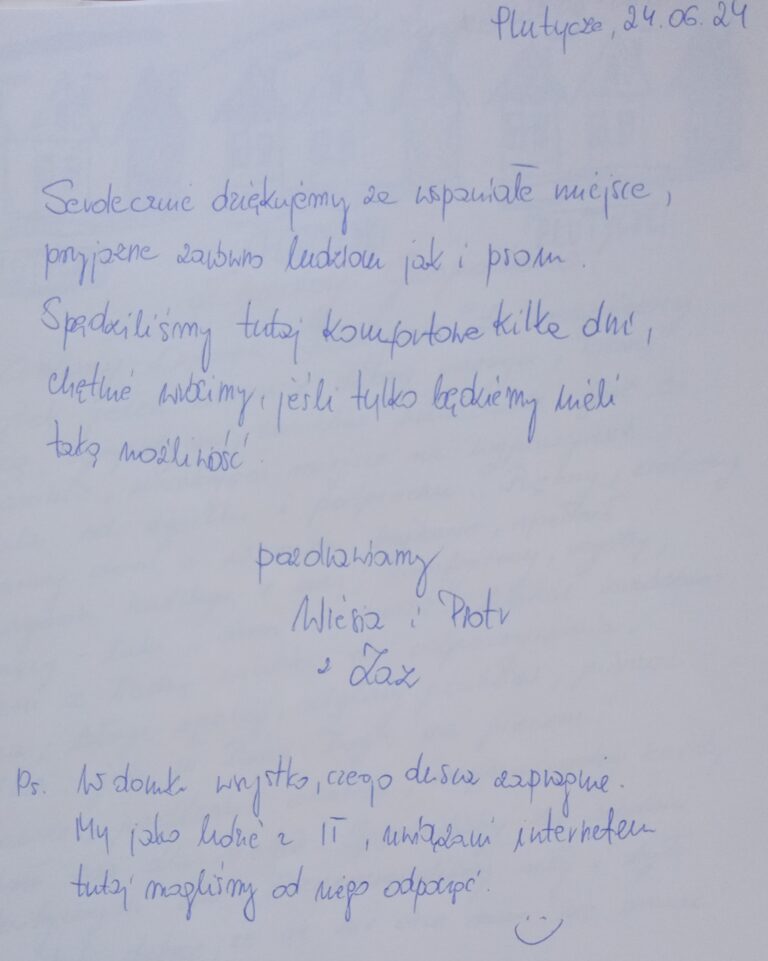 Plutycze, 24.06.24
Serdecznie dziękujemy za wspaniałe miejsce,
przyjazne zarówno ludziom jak i psom.
Spędziliśmy tutaj komfortowe kilka dni,
chętnie wrócimy, jeśli tylko będziemy mieli
taką możliwość.
pozdrawiamy
Wiesia i Piotr
z Łaz
Ps. W domku wszystko, czego dusza zapragnie.
My jako ludzie z IT, uwiązani internetem
tutaj mogliśmy od niego odpocząć.